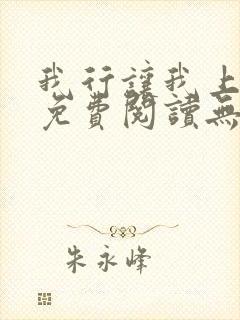 我行讓我上
免費閱讀無
朱永峰